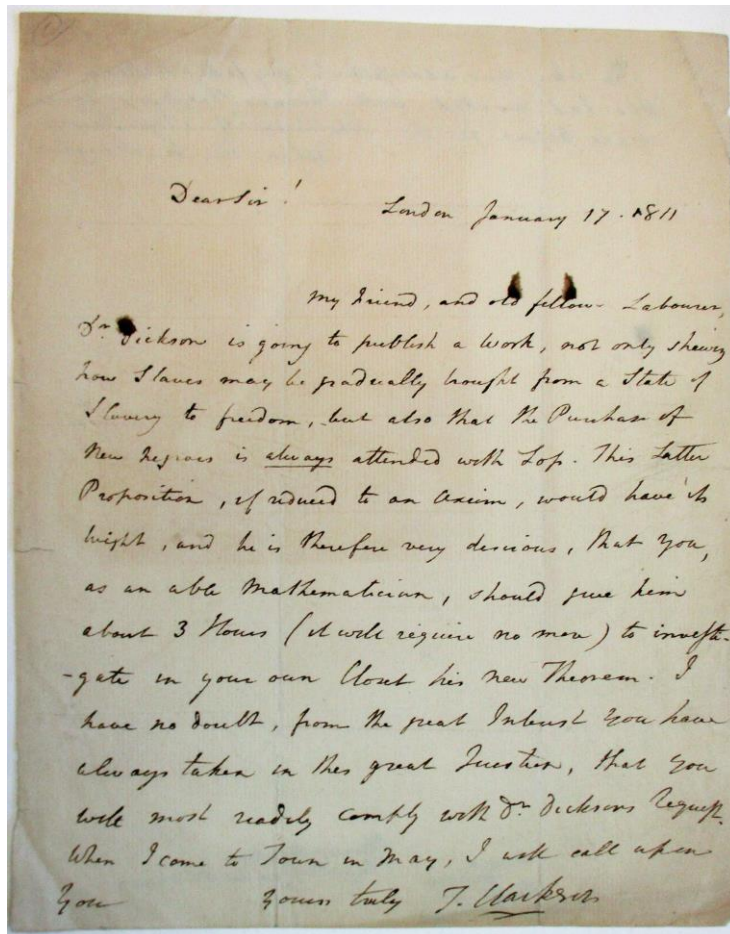 Dear Sir! London January 17. 1811
My Friend, and old fellow-Labourer,
Dr. Dickson is going to publish a Work, not only shewing
how Slaves may be gradually brought from a State of
Slavery to freedom, but also that the Purchase of
New Negroes is always attended with Loss. This Latter
Proposition, if reduced to an Axiom, would have its
weight, and he is therefore very desirous, that you,
as an able Mathematician, should give him
about 3 Hours (it will require no more) to investi-
-gate in your own Closet his new Theorem. I
have no doubt, from the great Interest you have
always taken in this great Question, that you
will most readily comply with Dr. Dicksons Request.
When I come to Town in May, I will call upon
you yours truly T. Clarkson